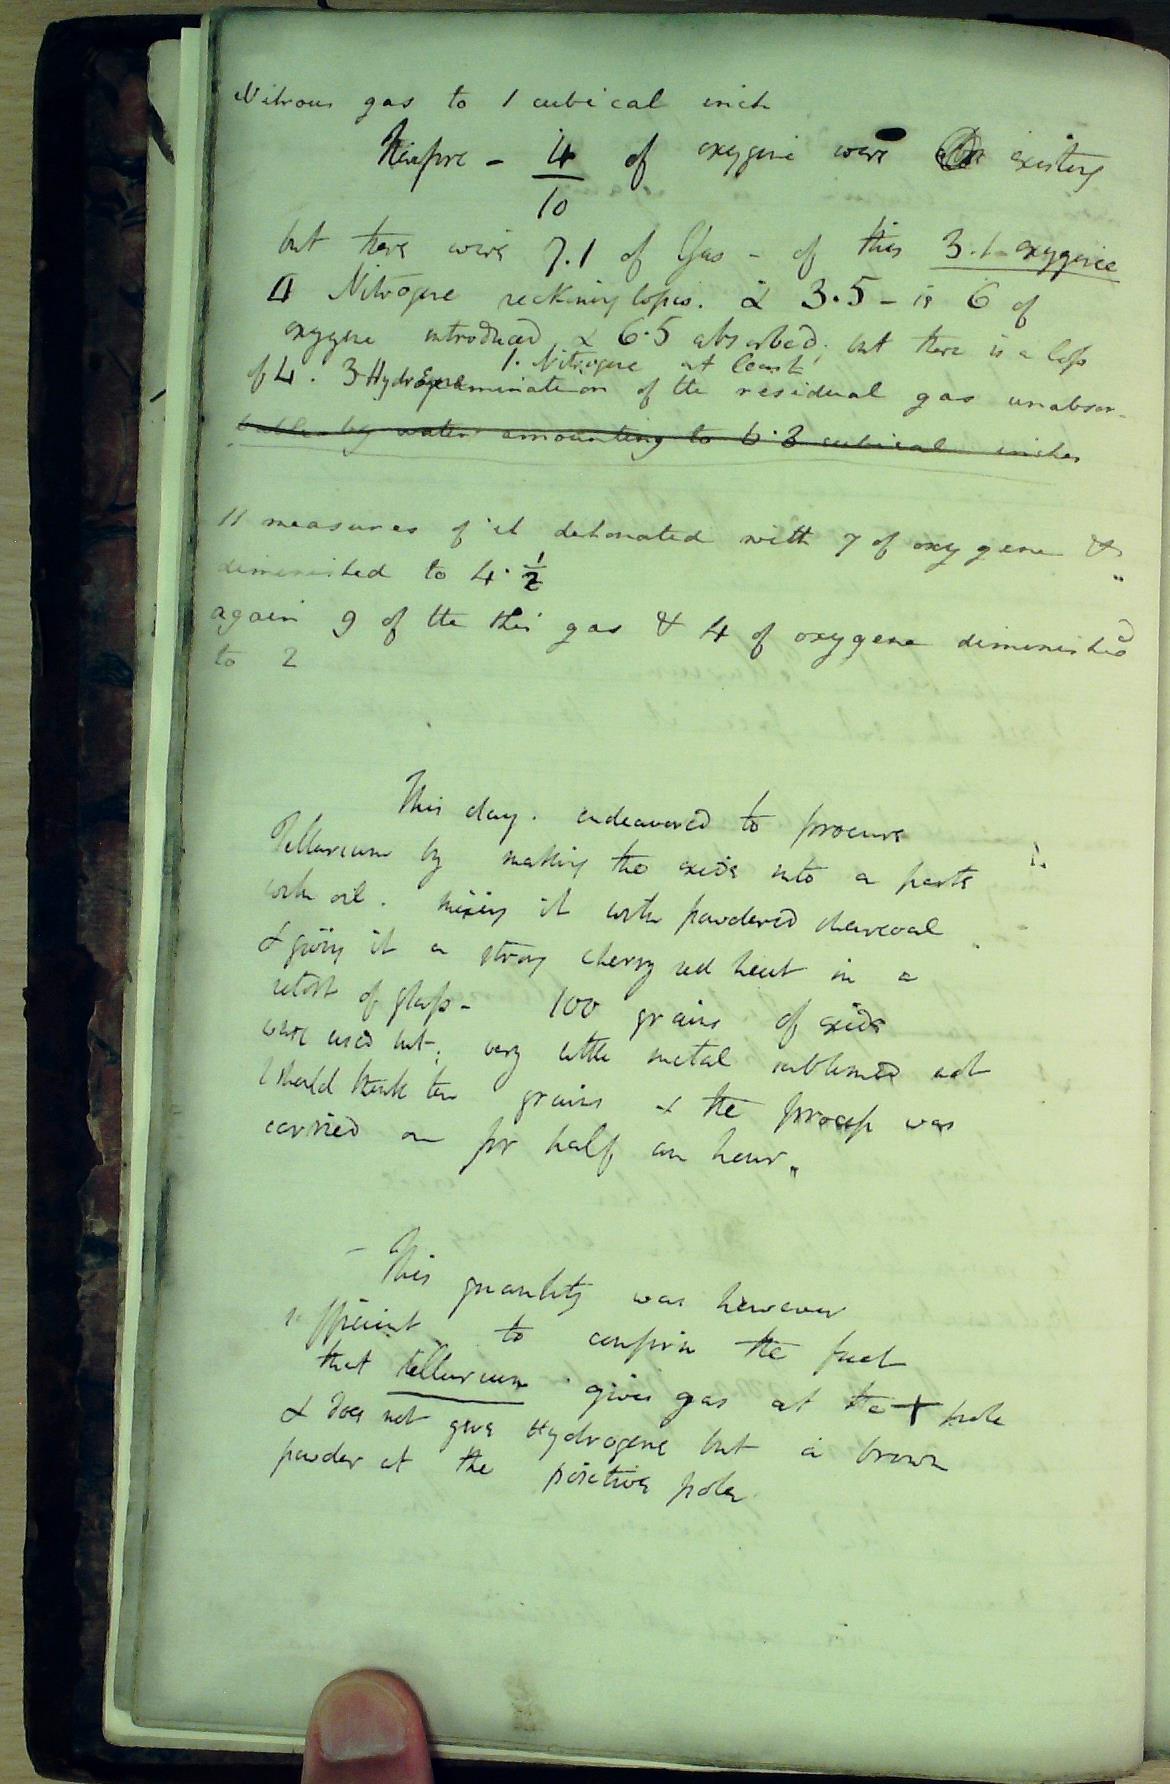 Nitrous gas to 1 cubical inch
Therefore - 4/10 of oxygene were existing
but there were 7.1 of Gas - of this 3.1 oxygene
4 Nitrogene reckining losses. & 3.5 - is 6 of
oxygene introduced & 6.5 absorbed; but there is a loss
1. Nitrogene at least
of 4. 3 Hydrogene Examination of the residual gas unabsor-
bable by water amounting to 6.3 cubical inches
11 measures of it detonated with 7 of oxygene &
diminished to 4. 1/2
again 9 of the this gas & 4 of oxygene diminished
to 2
This day. endeavored to procure
Tellurium by making the oxide into a paste
with oil. mixing it with powdered charcoal
& giving it a strong cherry red heat in a
retort of glass - 100 grains of oxide
were used but; very little metal sublimed not
I should think ten grains & the process was
carried on for half an hour,,
- This quantity was however
sufficient to confirm the fact
that tellurium gives gas at the + pole
& does not give Hydrogene but a brown
powder at the positive pole